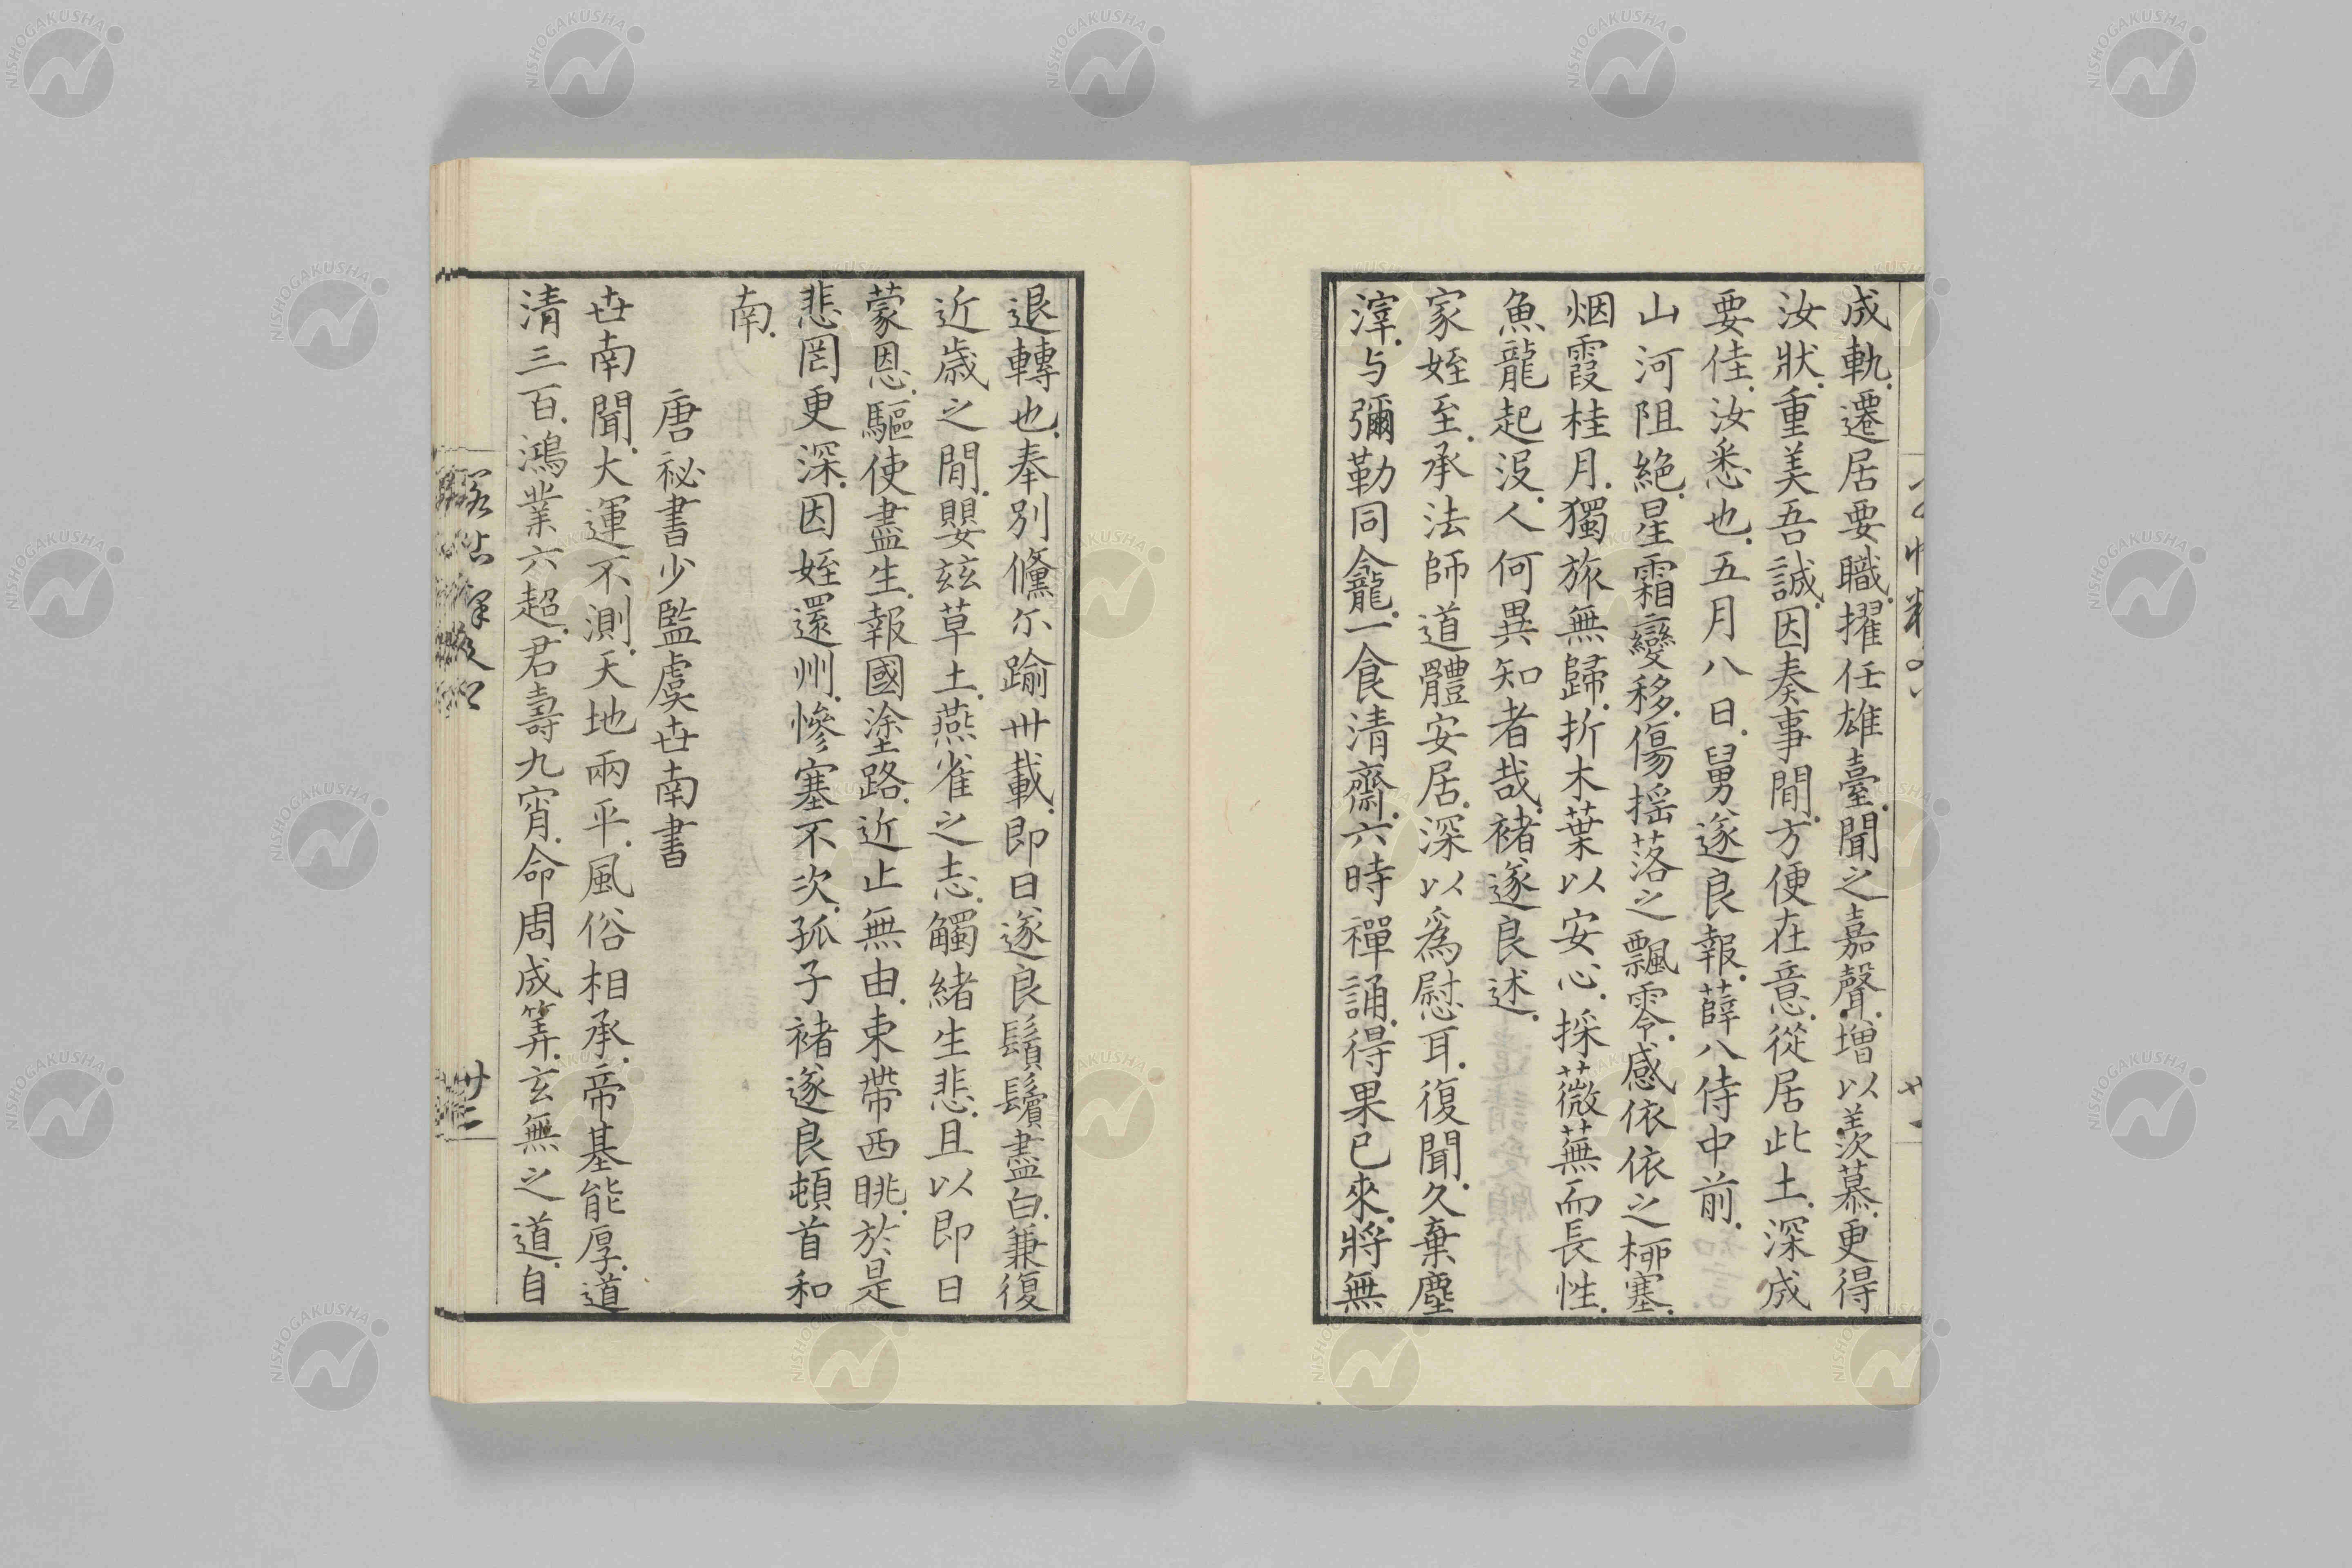 成軌.遷居要職.擢任雄臺.聞之嘉聲.增以羨慕.更得
汝狀.重美吾誠.因奏事間.方便在意.從居此土.深成
要佳.汝悉也.五月八日.舅遂良報.薛八侍中前.
山河阻絶.星霜變移.傷搖落之飄零.感依依之柳塞.
烟霞桂月.獨旅無歸.折木葉以安心.採薇蕪而長性.
魚龍起没.人何異知者哉.褚遂良述.
家姪至.承法師道體安居.深以爲慰耳.復聞.久棄塵
滓.与彌勒同龕.一食清齋.六時禪誦.得果已來.將無
退轉也.奉別儵尓踰卅載.即日遂良鬚鬢盡白.兼復
近歳之間.嬰玆草土.燕雀之志.觸緒生悲.且以即日
蒙恩.驅使盡生.報國塗路.近止無由.束帶西眺.於是
悲罔更深.因姪還州.慘塞不次.孤子褚遂良頓首和
南.
唐祕書少監虞世南書
世南聞.大運不測.天地兩平.風俗相承.帝基能厚.道
清三百.鴻業六超.君壽九宵.命周成筭.玄無之道.自
廿二
NISHOGAKUSHA